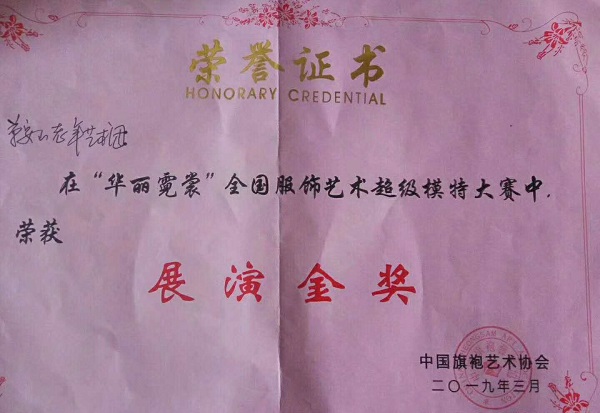 荣誉证书
HONORARY CREDENTIAL
在“华丽霓裳”全国服饰艺术超级模特大赛中,
荣获
展演金奖
中国旗袍艺术协会
二〇一九年三月